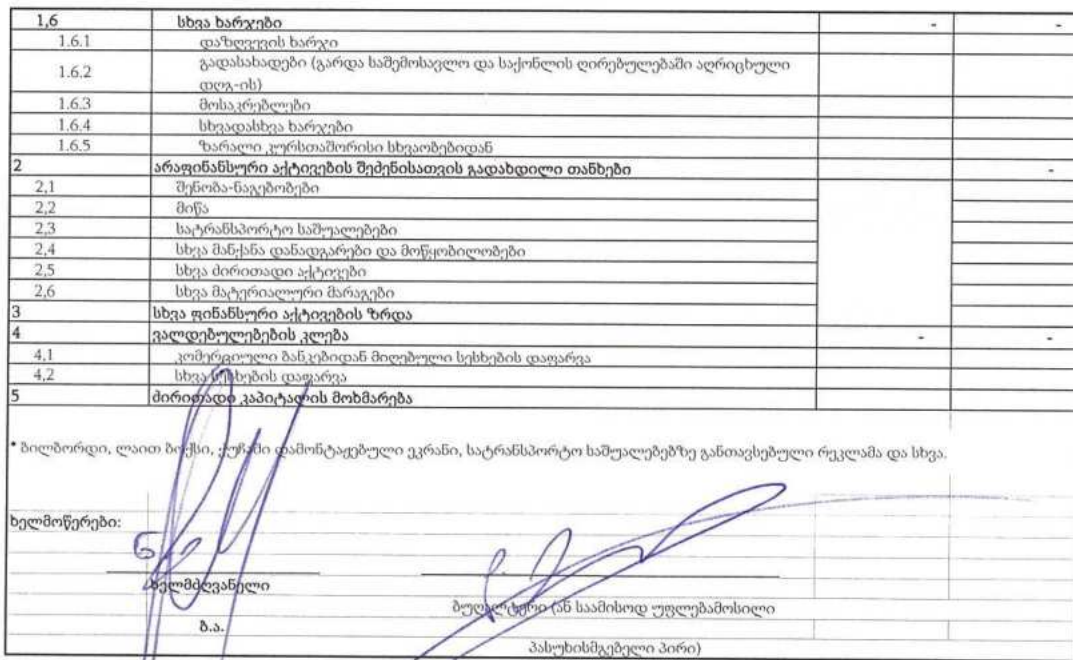 1,6 სხვა ხარჯები - -
1.6.1 დაზღვევის ხარჯი
1.6.2 გადასახადები (გარდა საშემოსავლო და საქონლის ღირებულებაში აღრიცხული
დღგ-ის)
1.6.3 მოსაკრებლები
1.6.4 სხვადასხვა ხარჯები
1.6.5 ზარალი კურსთაშორისი სხვაობებიდან
2 არაფინანსური აქტივების შეძენისათვის გადახდილი თანხები -
2,1 შენობა-ნაგებობები
2,2 მიწა
2,3 სატრანსპორტო საშუალებები
2,4 სხვა მანქანა დანადგარები და მოწყობილობები
2,5 სხვა ძირითადი აქტივები
2,6 სხვა მატერიალური მარაგები
3 სხვა ფინანსური აქტივების ზრდა
4 ვალდებულებების კლება - -
4,1 კომერციული ბანკებიდან მიღებული სესხების დაფარვა
4,2 სხვა სესხების დაფარვა
5 ძირითადი კაპიტალის მოხმარება
* ბილბორდი, ლაით ბოქსი, ქუჩაში დამონტაჟებული ეკრანი, სატრანსპორტო საშუალებებზე განთავსებული რეკლამა და სხვა.
ხელმოწერები:
ხელმძღვანელი
ბუღალტერი (ან საამისოდ უფლებამოსილი
ბ.ა.
პასუხისმგებელი პირი)